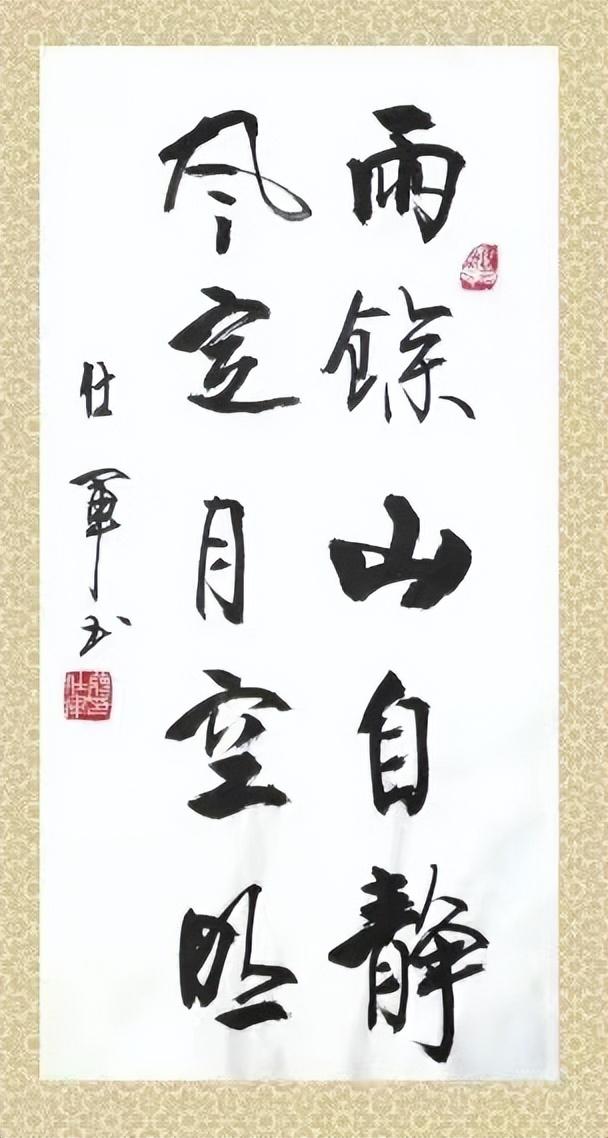 雨餘山自靜
风定月空明
仕軍书